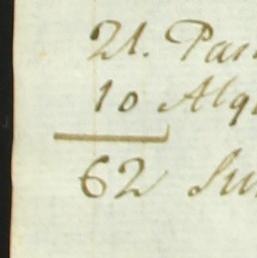 21. Pas
10 Alq
62 Su